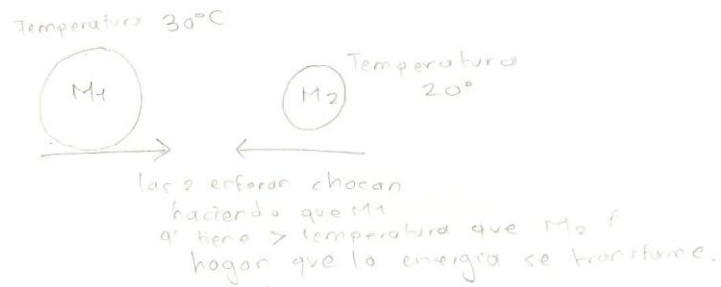 Temperatura 30°C
M1
M2
Temperatura
20°
las 2 esferan chocan
haciendo que M1
q' tiene > temperatura que M2
hagan que la energía se transforme.